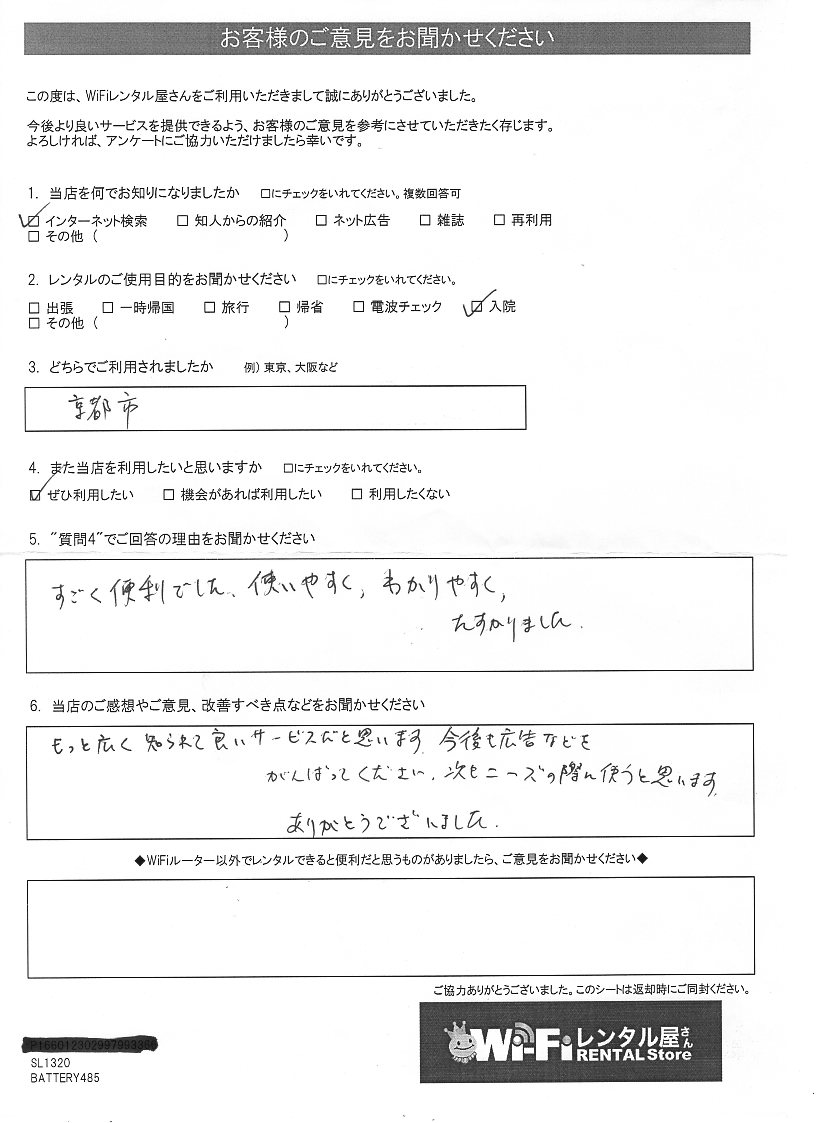 お客様のご意見をお聞かせください
この度は、WiFiレンタル屋さんをご利用いただきまして誠にありがとうございました。
今後より良いサービスを提供できるよう、お客様のご意見を参考にさせていただきたく存じます。
よろしければ、アンケートにご協力いただけましたら幸いです。
1. 当店を何でお知りになりましたか □にチェックをいれてください。複数回答可
☑ インターネット検索 □ 知人からの紹介 □ ネット広告 □ 雑誌 □ 再利用
□ その他 ( )
2. レンタルのご使用目的をお聞かせください □にチェックをいれてください。
□ 出張 □ 一時帰国 □ 旅行 □ 帰省 □ 電波チェック ☑ 入院
□ その他 ( )
3. どちらでご利用されましたか 例) 東京、大阪など
京都市
4. また当店を利用したいと思いますか □にチェックをいれてください。
☑ ぜひ利用したい □ 機会があれば利用したい □ 利用したくない
5. "質問4"でご回答の理由をお聞かせください
すごく便利でした、使いやすく、わかりやすく、
たすかりました.
6. 当店のご感想やご意見、改善すべき点などをお聞かせください
もっと広く知られて良いサービスだと思います 今後も広告などを
がんばってください. 次もニーズの際に使うと思います.
ありがとうございました.
◆WiFiルーター以外でレンタルできると便利だと思うものがありましたら、ご意見をお聞かせください◆
ご協力ありがとうございました。このシートは返却時にご同封ください。
Wi-Fiレンタル屋さん
RENTAL Store
SL1320
BATTERY485